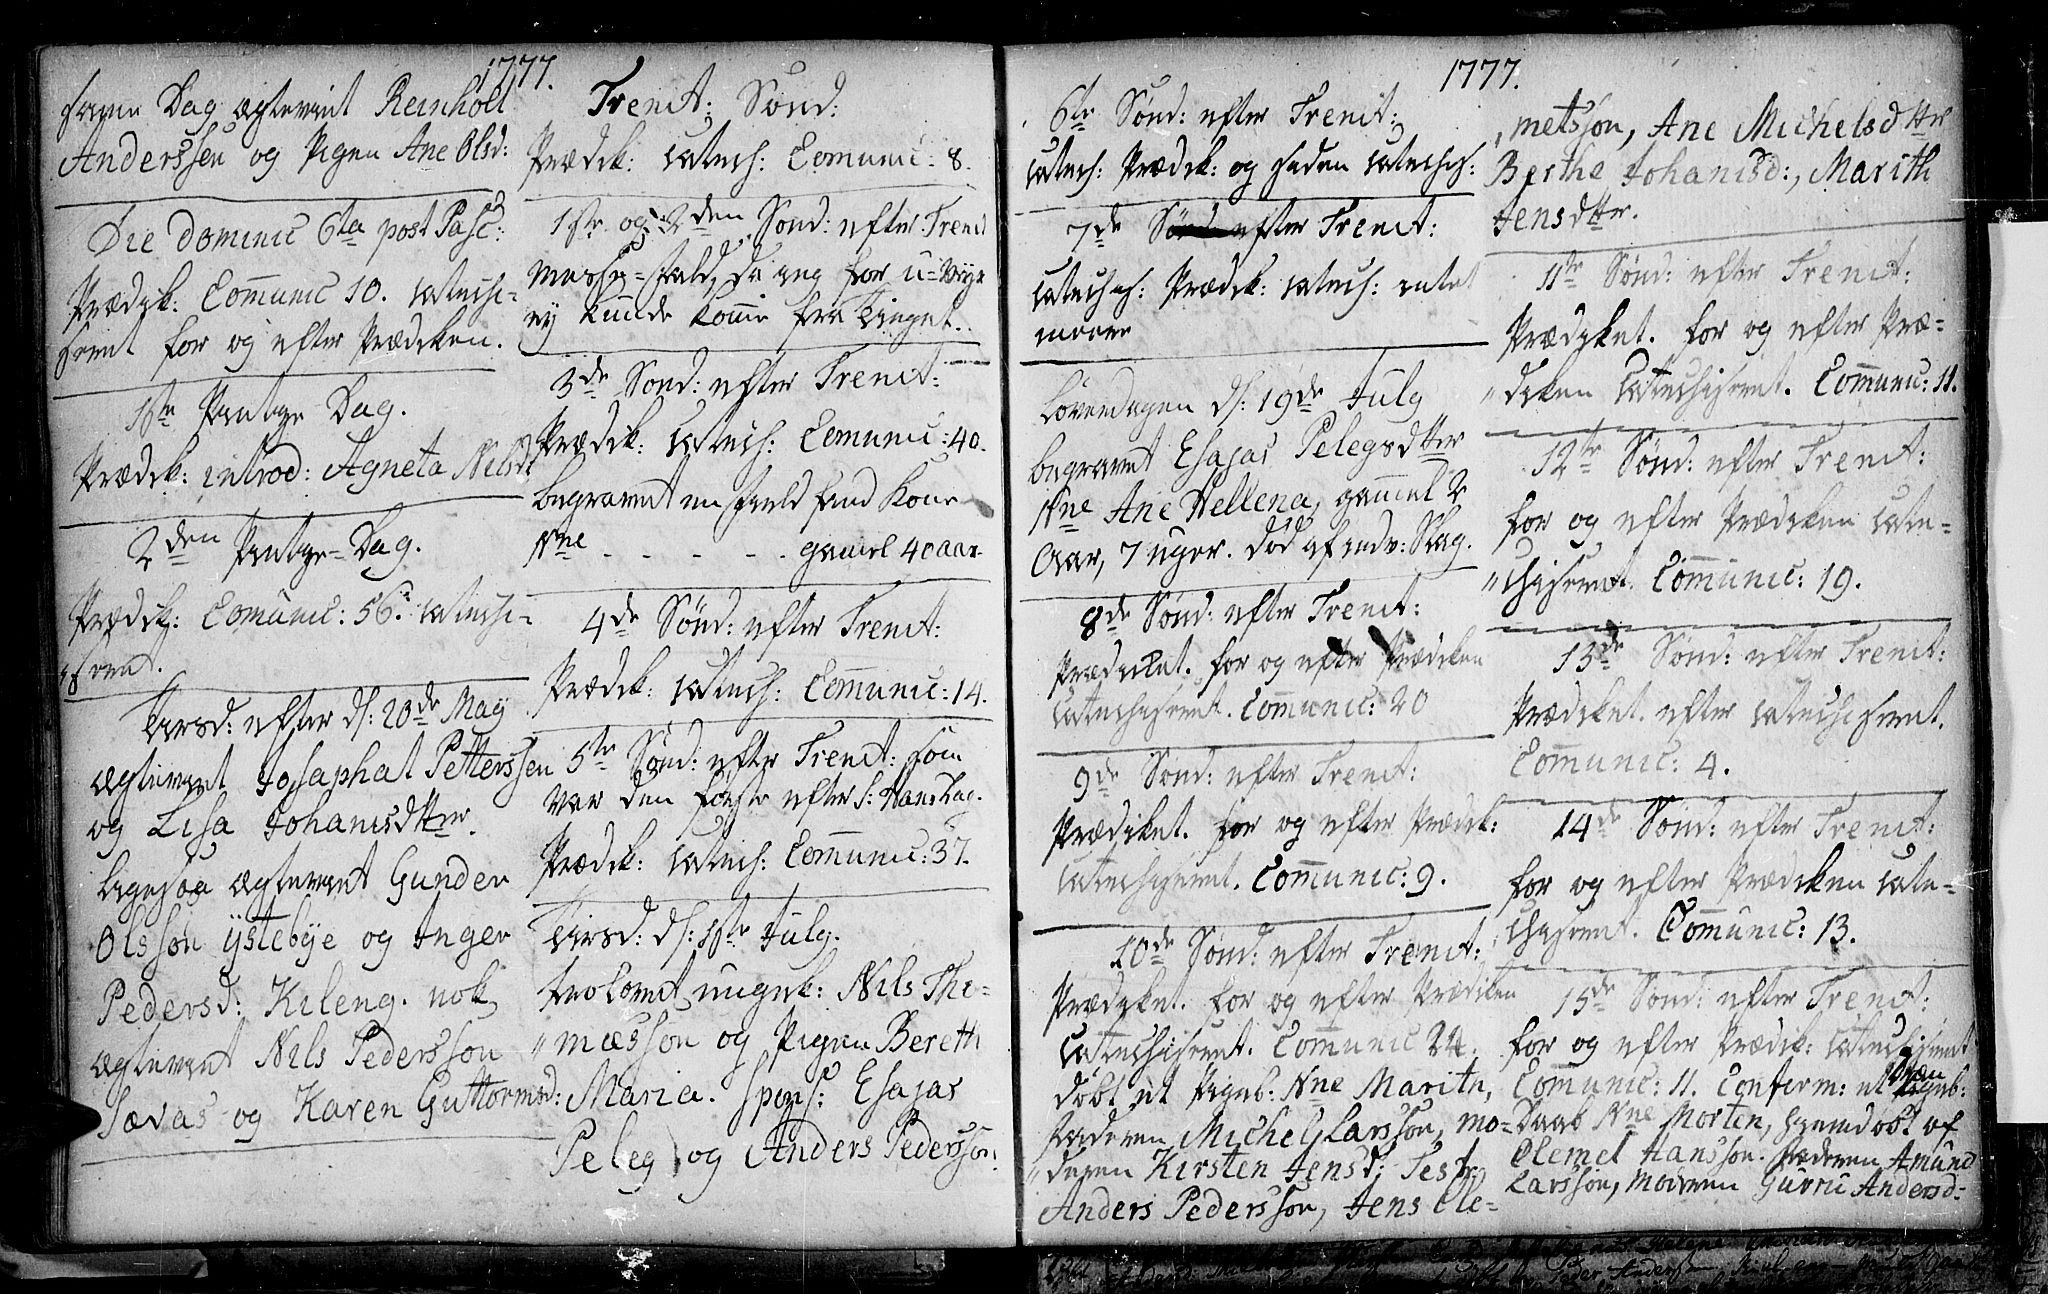 1777.
samme Dag ægteviet Reinholt
Anderssen og Pigen Ane Olsd:
Die Dominic 6ta post Pasc:
Prædik: Communic 10. catechi-
seret for og efter Prædiken.
1ste Pintze Dag.
Prædik: introd: Agneta Nilsd:
2den Pintze-Dag.
Prædik: Comunic: 56. catechi-
seret.
Tirsd: efter d: 20de Maij
ægteviet Josaphat Petterssen
og Lisa Johanisdtter.
ligesaa ægteviet Gunder
Olsson ÿstebÿe og Inger
Pedersd: Kileng. nok
ægteviet Nils Pedersson
Sævas og Karen Guttormsd:
Trenit: Sønd:
Prædik: catech: Comunic: 8.
1ste og 2den Sønd: efter Trenit
Messe-fald, da jeg for u-
ej kunde komme fra Tinget.
3de Sønd: efter Trenit:
Prædik: catech: Comunic: 40.
begravet en Kone
Nne - - - - - gamel 40 aar
4de Sønd: efter Trenit:
Prædik: catech: Communic: 14.
5te Sønd: efter Trenit: som
var den første efter S: Hans Dag.
Prædik: catech: Communic: 37.
Tirsd: d: 1ste Julÿ.
trolovet ungk: Nils Tho-
masson og Pigen Bereth
Maria. spons: Esajas
Peleg og Anders Pedersson.
1777.
6te Sønd: efter Trenit:
catech: Prædik: og siden catechis:
7de Sønd: efter Trenit:
catechis: Prædik: catech: intet
meere
Løverdagen d: 19de Julÿ
begravet Esajas Pelegsdtter
Nne Ane Hellena, gammel 2
Aar, 7 uger. død af indv: Slag.
8de Sønd: efter Trenit:
Prædiket. for og efter Prædiken
catechiseret. Communic: 20
9de Sønd: efter Trenit:
Prædiket. for og efter Prædik:
catechiseret. Communic: 9.
10de Sønd: efter Trenit:
Prædiket. for og efter Prædiken
catechiseret. Communic 24.
døbt et Pigeb: Nne Marite,
Faderen Michel Larsson, mo-
deren Kirsten Jensd: Test:
Anders Pedersson, Jens Cle-
metsson, Ane Michelsdttr
Berthe Johanisd:, Marith
Jensdttr.
11te Sønd: efter Trenit:
Prædiket. for og efter Præ-
diken catechiseret. Communic: 11.
12te Sønd: efter Trenit:
for og efter Prædiken cate-
chiseret. Communic: 19.
13de Sønd: efter Trenit:
Prædiket. efter catechiseret.
Communic: 4.
14de Sønd: efter Trenit:
for og efter Prædiken cate-
chiseret. Communic: 13.
15de Sønd: efter Trenit:
for og efter Prædik: catechiseret
Comunic: 11. Confirm: et
Daab Nne Morten, hjemdøbt af
Olemel Hansson. Faderen Amund
Larsson, Moderen Gurru Andersd-